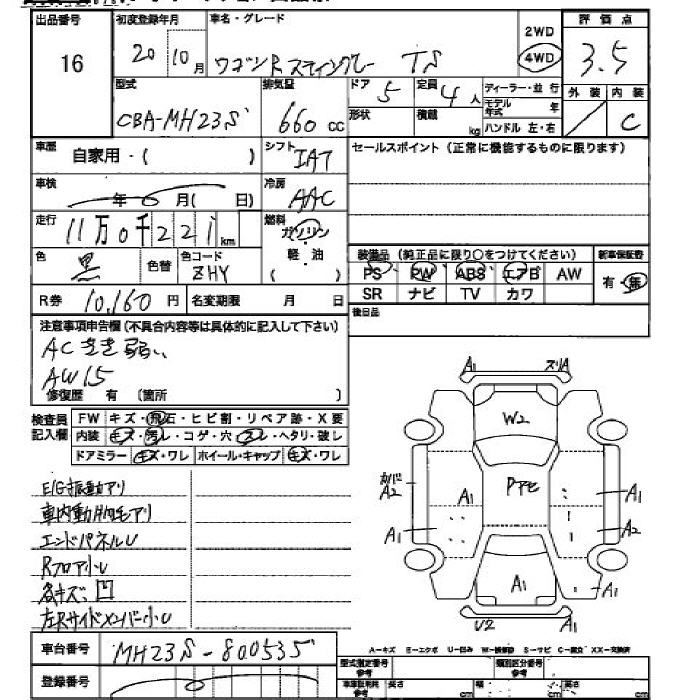 出品番号 初度登録年月 車名・グレード 2WD 評価点
16 20 10月 ワゴンR スティングレー TS 4WD 3.5
型式 排気量 ドア 5 定員 4人 ディーラー・並行 外装 内装
CBA-MH23S 660cc 形状 積載 kg モデル年式 年 ハンドル 左・右 C
車歴 自家用・( ) シフト IAT セールスポイント (正常に機能するものに限ります)
車検 年 月( 日) 冷房 AAC
走行 11万0千221km 燃料 ガソリン
軽・油
( )
色 黒 色替 色コード ZHY
装備品 (純正品に限り○をつけてください) 新車保証書
PS PW ABS エアB AW 有・無
SR ナビ TV カワ
R券 10,160円 名変期限 月 日 後日品
注意事項申告欄(不具合内容等は具体的に記入して下さい)
ACきき弱い
AW15
修復歴 有 (箇所 )
検査員記入欄 FW キズ・飛石・ヒビ割・リペア跡・X要
内装 キズ・汚レ・コゲ・穴・スレ・ヘタリ・破レ
ドアミラー キズ・ワレ ホイール・キャップ キズ・ワレ
E/G振動アリ
車内動物毛アリ
エンドパネルU
Rフロア小U
各キズ凹
左Rサイドメンバー小U
A1 スリA
W2
A2 A1 A1
A1 A2
A1 A1
U2
A-キズ E-エクボ U-凹み W-板修跡 S-サビ C-腐食 XX-交換済
車台番号 MH23S-800535
登録番号
型式指定番号 参考 類別区分番号 参考
車庫証明用 参考 長さ cm 幅 cm 高さ cm